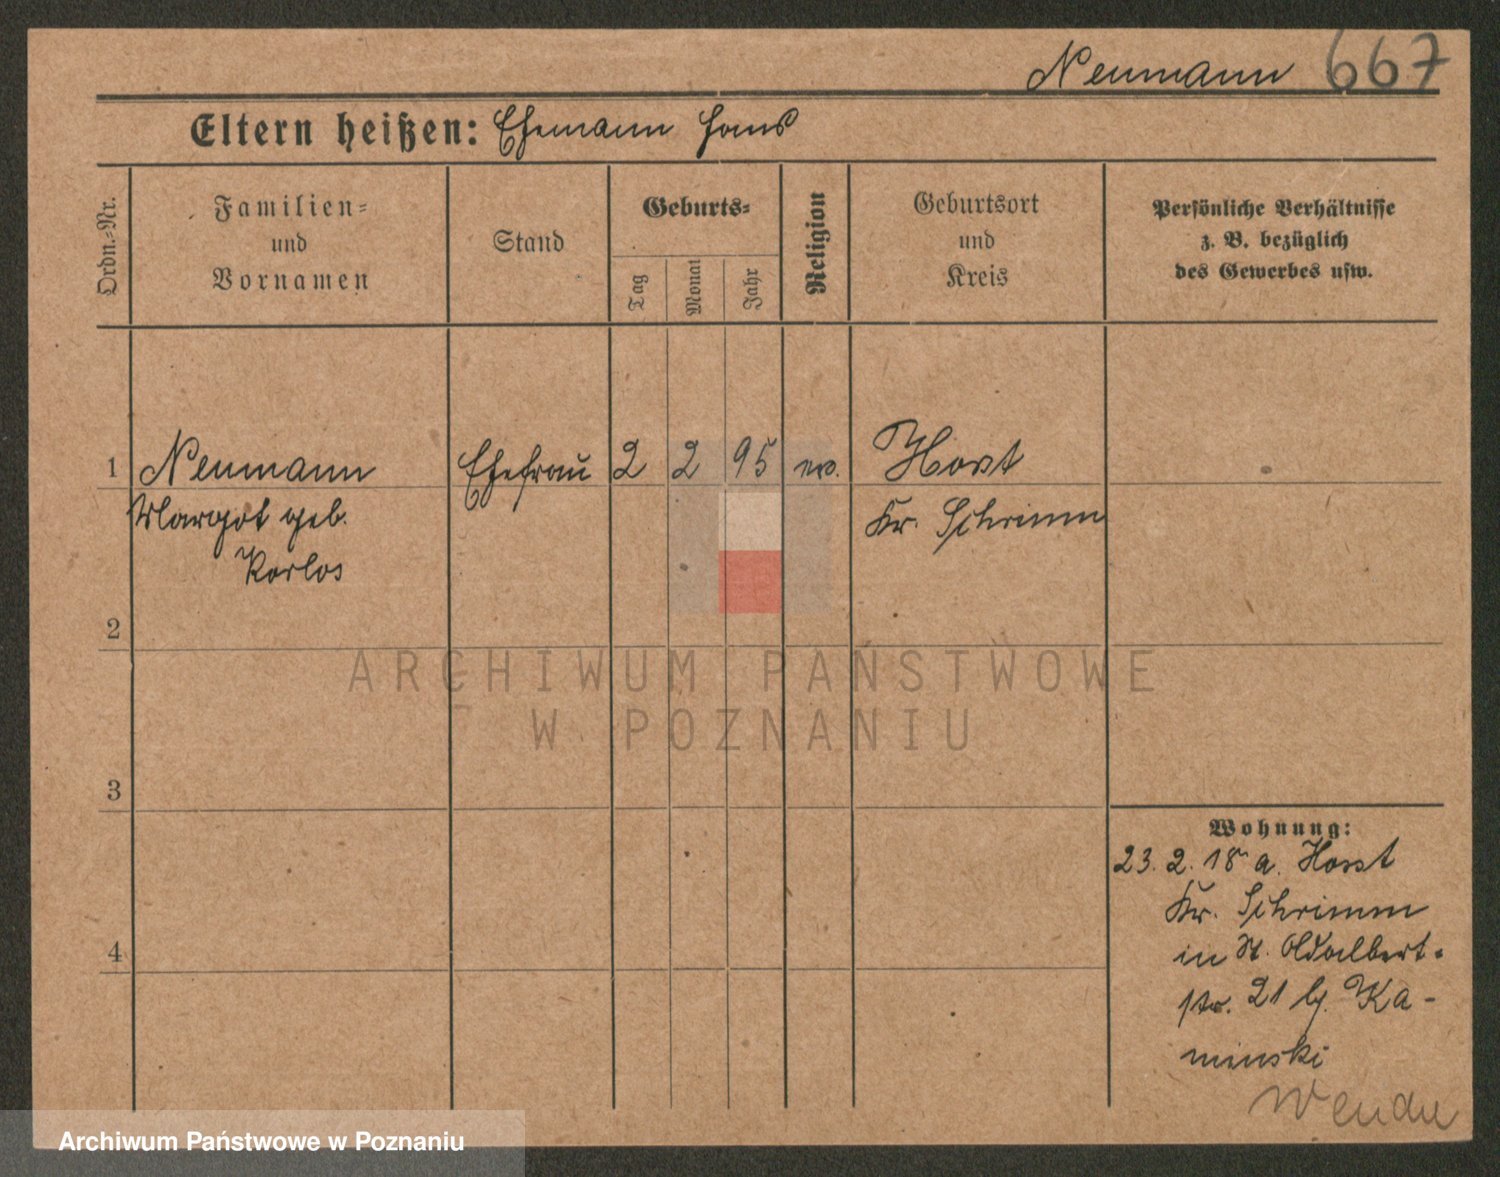 Neumann 667
Eltern heißen: Ehemann Hans
Ordn.-Nr.
Familien-
und
Vornamen
Stand
Geburts-
Tag
Monat
Jahr
Religion
Geburtsort
und
Kreis
Persönliche Verhältnisse
z. B. bezüglich
des Gewerbes usw.
1 Neumann Ehefrau 2 2 95 ev. Horst
Margot geb. Kr. Schrimm
Korlos
2
3
4
Wohnung:
23. 2. 18 a. Horst
Kr. Schrimm
in St. Adalbert-
str. 21 bj. Ka-
minski
Wenden
ARCHIWUM PAŃSTWOWE
W POZNANIU
Archiwum Państwowe w Poznaniu